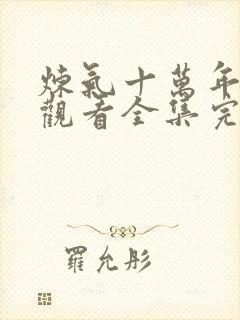 煉氣十萬年
觀看全集完
羅允彤